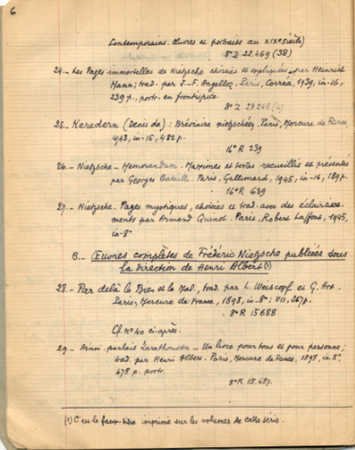 6
Contemporains. Œuvres et portraits au XIXe siècle)
8° Z 22.469 (38)
24.- Les Pages immortelles de Nietzsche choisies et expliquées par Heinrich
Mann; trad. par J.-F. Angelloz. Paris, Corrêa, 1939, in-16,
239 p., portr. en frontispice.
8° Z
25.- (Denis de): Bréviaire nietzschéen. Paris, Mercure de France,
in-16, 482 p.
16° R 239
26.- Nietzsche.- Memorandum. Maximes et textes recueillis et présentés
par Georges Bataille. Paris, Gallimard, 1945, in-16, p.
16° R 689
27.- Nietzsche. Pages mystiques, choisies et trad. avec des éclaircisse-
ments par Armand Quinot. Paris. Robert Laffont, 1945,
in-8°
B.- Œuvres complètes de Frédéric Nietzsche publiées sous
la direction de Henri Albert (1)
28.- Par delà le Bien et le Mal, trad. par L. Weiscopf et G. Art.
Paris, Mercure de France, 1898, in-8°; VII, 267 p.
8° R 15688
Cf. N° 40 ci-après.
29.- Ainsi parlait Zarathoustra.- Un livre pour tous et pour personne;
trad. par Henri Albert. Paris, Mercure de France, 1898, in-8°,
478 p. portr.
8° R 15.687.
(1) C'est le faux-titre imprimé sur les volumes de cette série.